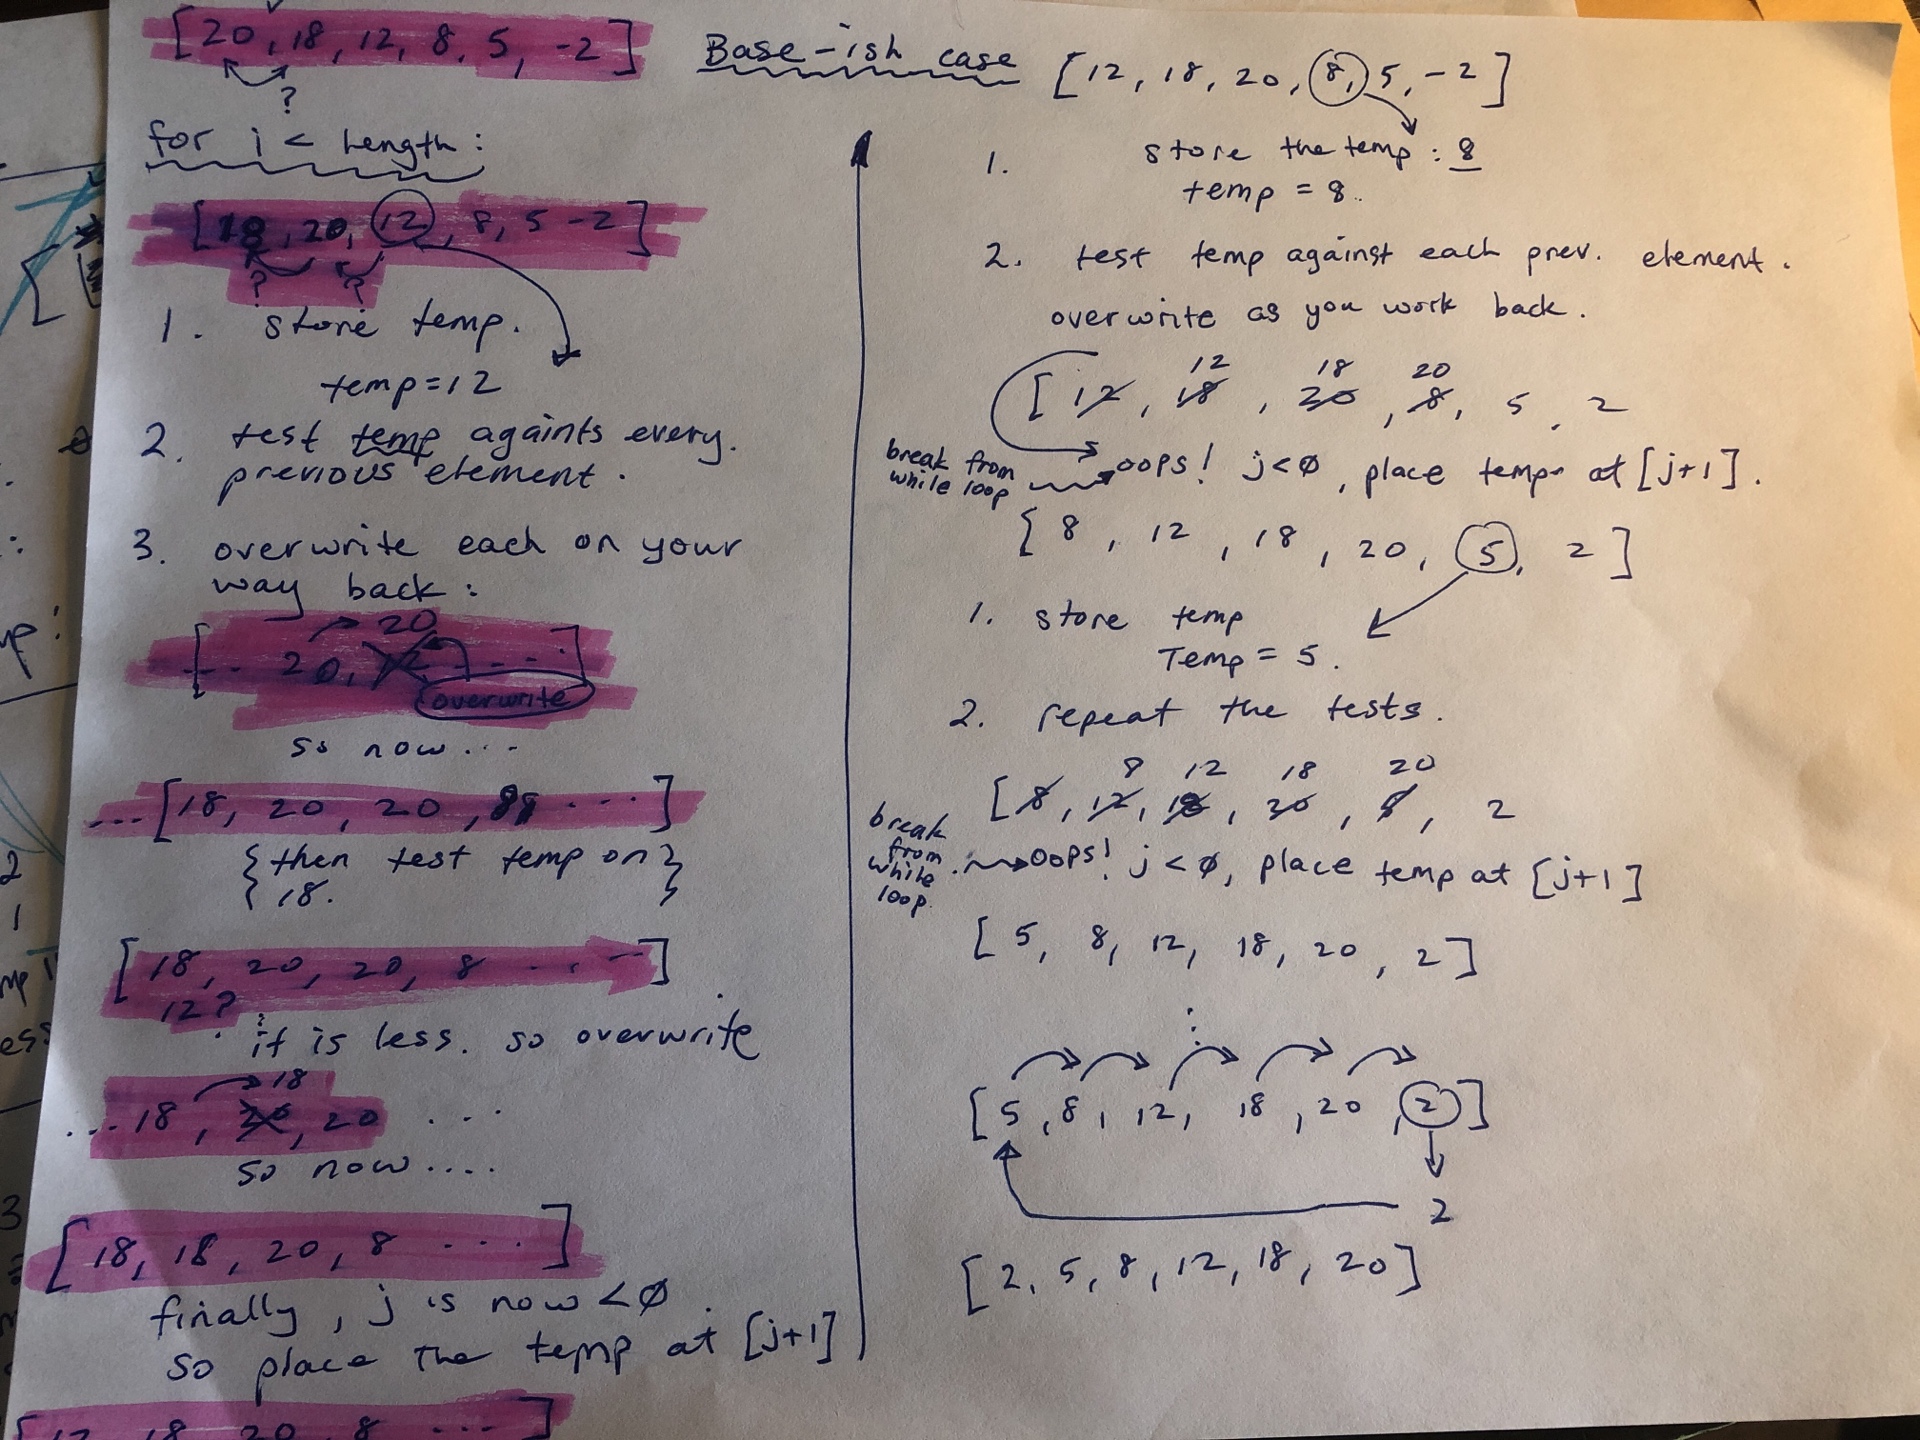 [20, 18, 12, 8, 5, -2]
?
for i < length:
[18, 20, 12, 8, 5 -2]
? ?
1. store temp.
temp=12
2. test temp againts every.
previous element.
3. overwrite each on your
way back:
20
[-- 20, 12 ----]
overwrite
so now...
...[18, 20, 20, 8 ...]
{then test temp on}
18.
[18, 20, 20, 8 ...]
12?
it is less. so overwrite
18
...18, 20, 20 ...
so now....
[18, 18, 20, 8 ...]
finally, j is now <0.
so place the temp at [j+1]
[12 18 20 8 ...]
Base-ish case [12, 18, 20, 8, 5, -2]
1. store the temp: 8
temp = 8.
2. test temp against each prev. element.
overwrite as you work back.
12 18 20
[12, 18, 20, 8, 5, 2
break from
while loop
oops! j<0, place temp at [j+1].
[8, 12, 18, 20, 5, 2]
1. store temp
Temp = 5.
2. repeat the tests.
8 12 18 20
[8, 12, 18, 20, 5, 2
break
from
while
loop.
oops! j<0, place temp at [j+1]
[5, 8, 12, 18, 20, 2]
[5, 8, 12, 18, 20, 2]
2
[2, 5, 8, 12, 18, 20]